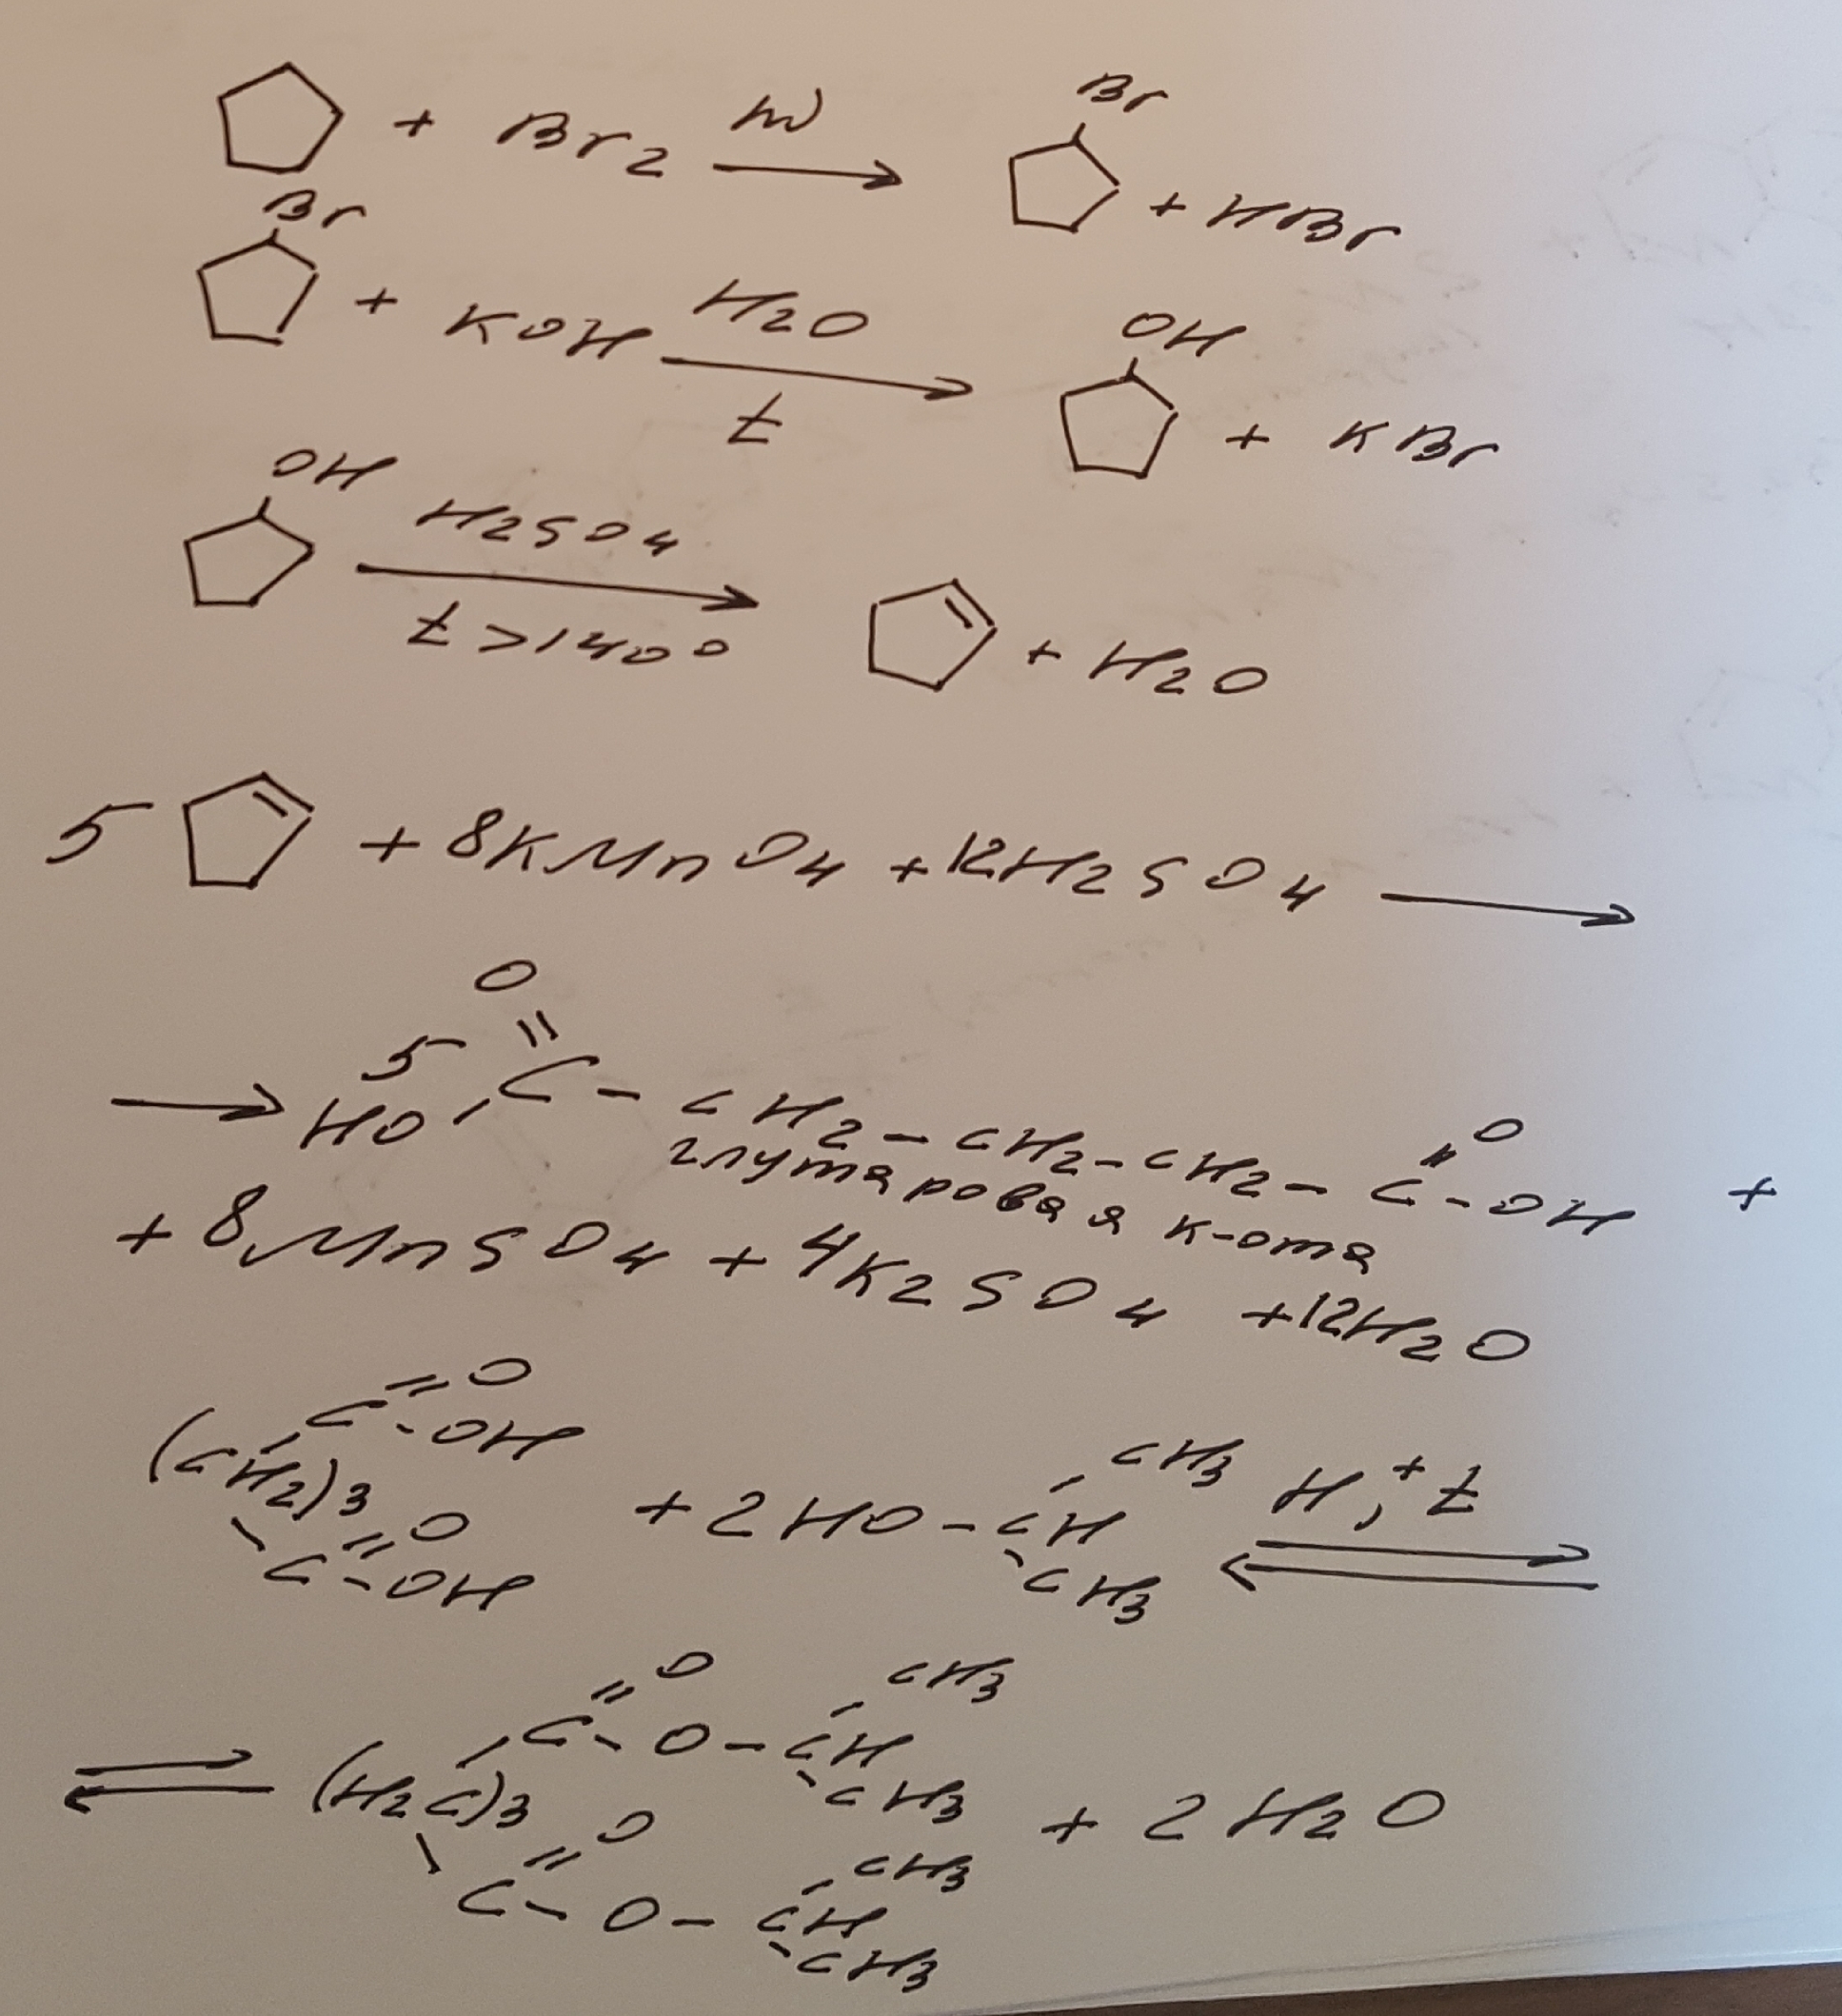 + Br2 hν → Br + HBr
Br + KOH H2O t → OH + KBr
OH H2SO4 t > 140° → + H2O
5 + 8KMnO4 + 12H2SO4 →
→ 5 HO-C(=O)-CH2-CH2-CH2-C(=O)-OH +
глутаровая к-ота
+ 8MnSO4 + 4K2SO4 + 12H2O
(CH2)3 C=O -OH C=O -OH + 2HO-CH CH3 CH3 H+, t ⇌
⇌ (H2C)3 C=O -O-CH CH3 CH3 C=O -O-CH CH3 CH3 + 2H2O